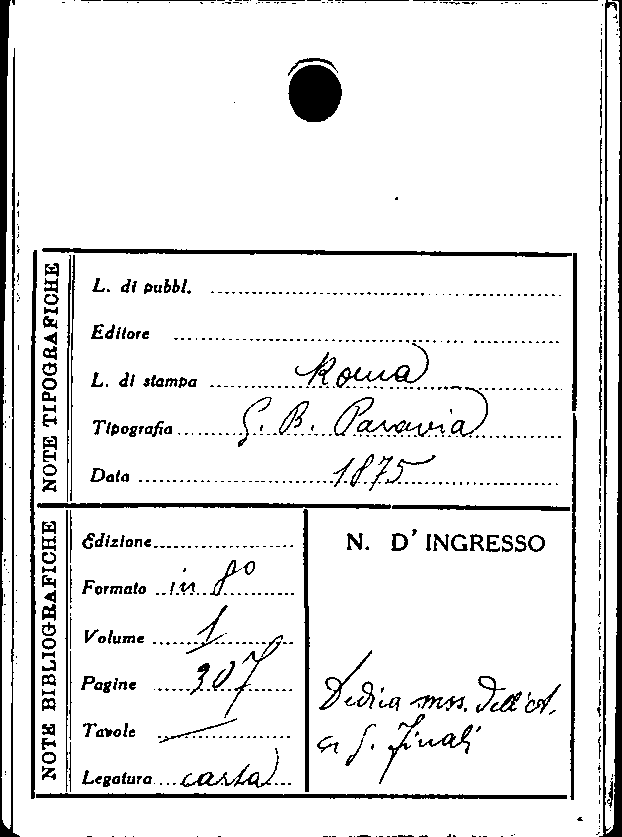 NOTE TIPOGRAFICHE
L. di pubbl.
Editore
L. di stampa Roma
Tipografia G. B. Paravia
Data 1875
NOTE BIBLIOGRAFICHE
Edizione
Formato in 8°
Volume 1
Pagine 307
Tavole —
Legatura carta
N. D'INGRESSO
Dedica mss. dell'A.
a G. Finali